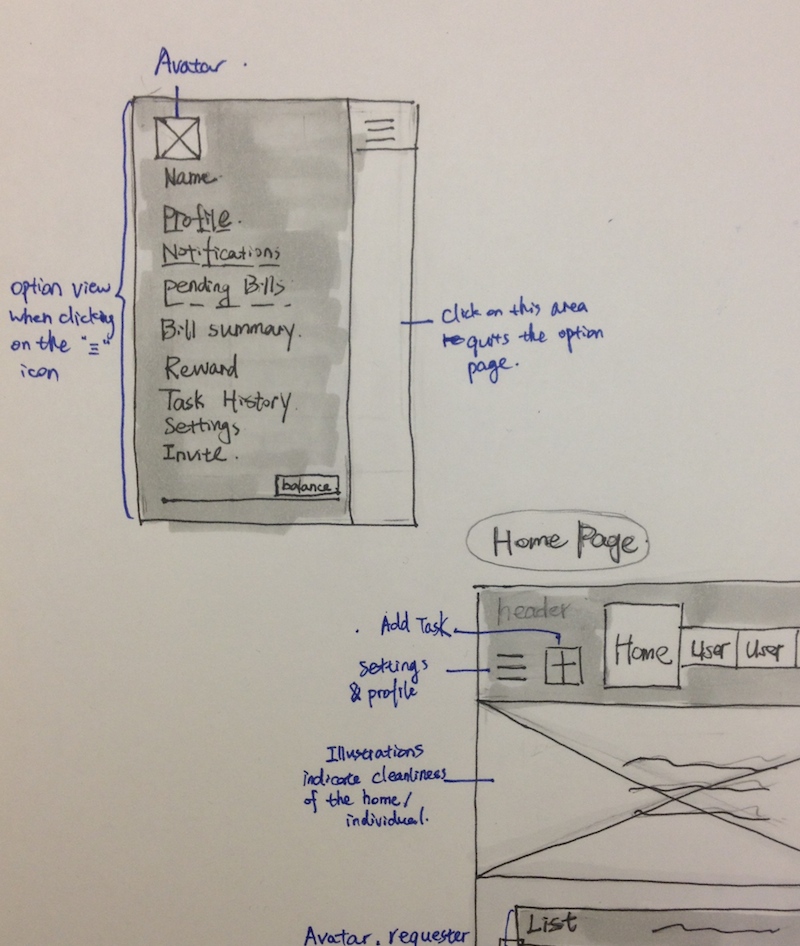 Avatar.
Name.
Profile.
Notifications
Pending Bills
Bill summary.
Reward
Task History.
Settings
Invite.
balance.
option view
when clicking
on the "Ξ"
icon
click on this area
quits the option
page.
Home Page.
header
Add Task
Home
User
User
settings
& profile
Illustrations
indicate cleanliness
of the home/
individual.
List
Avatar, requester